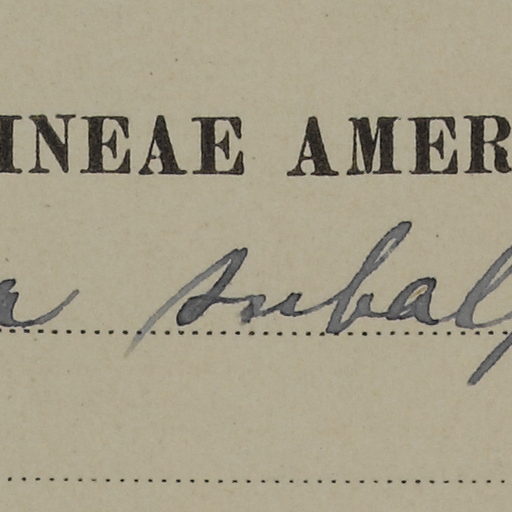 INEAE AMER
a subalp